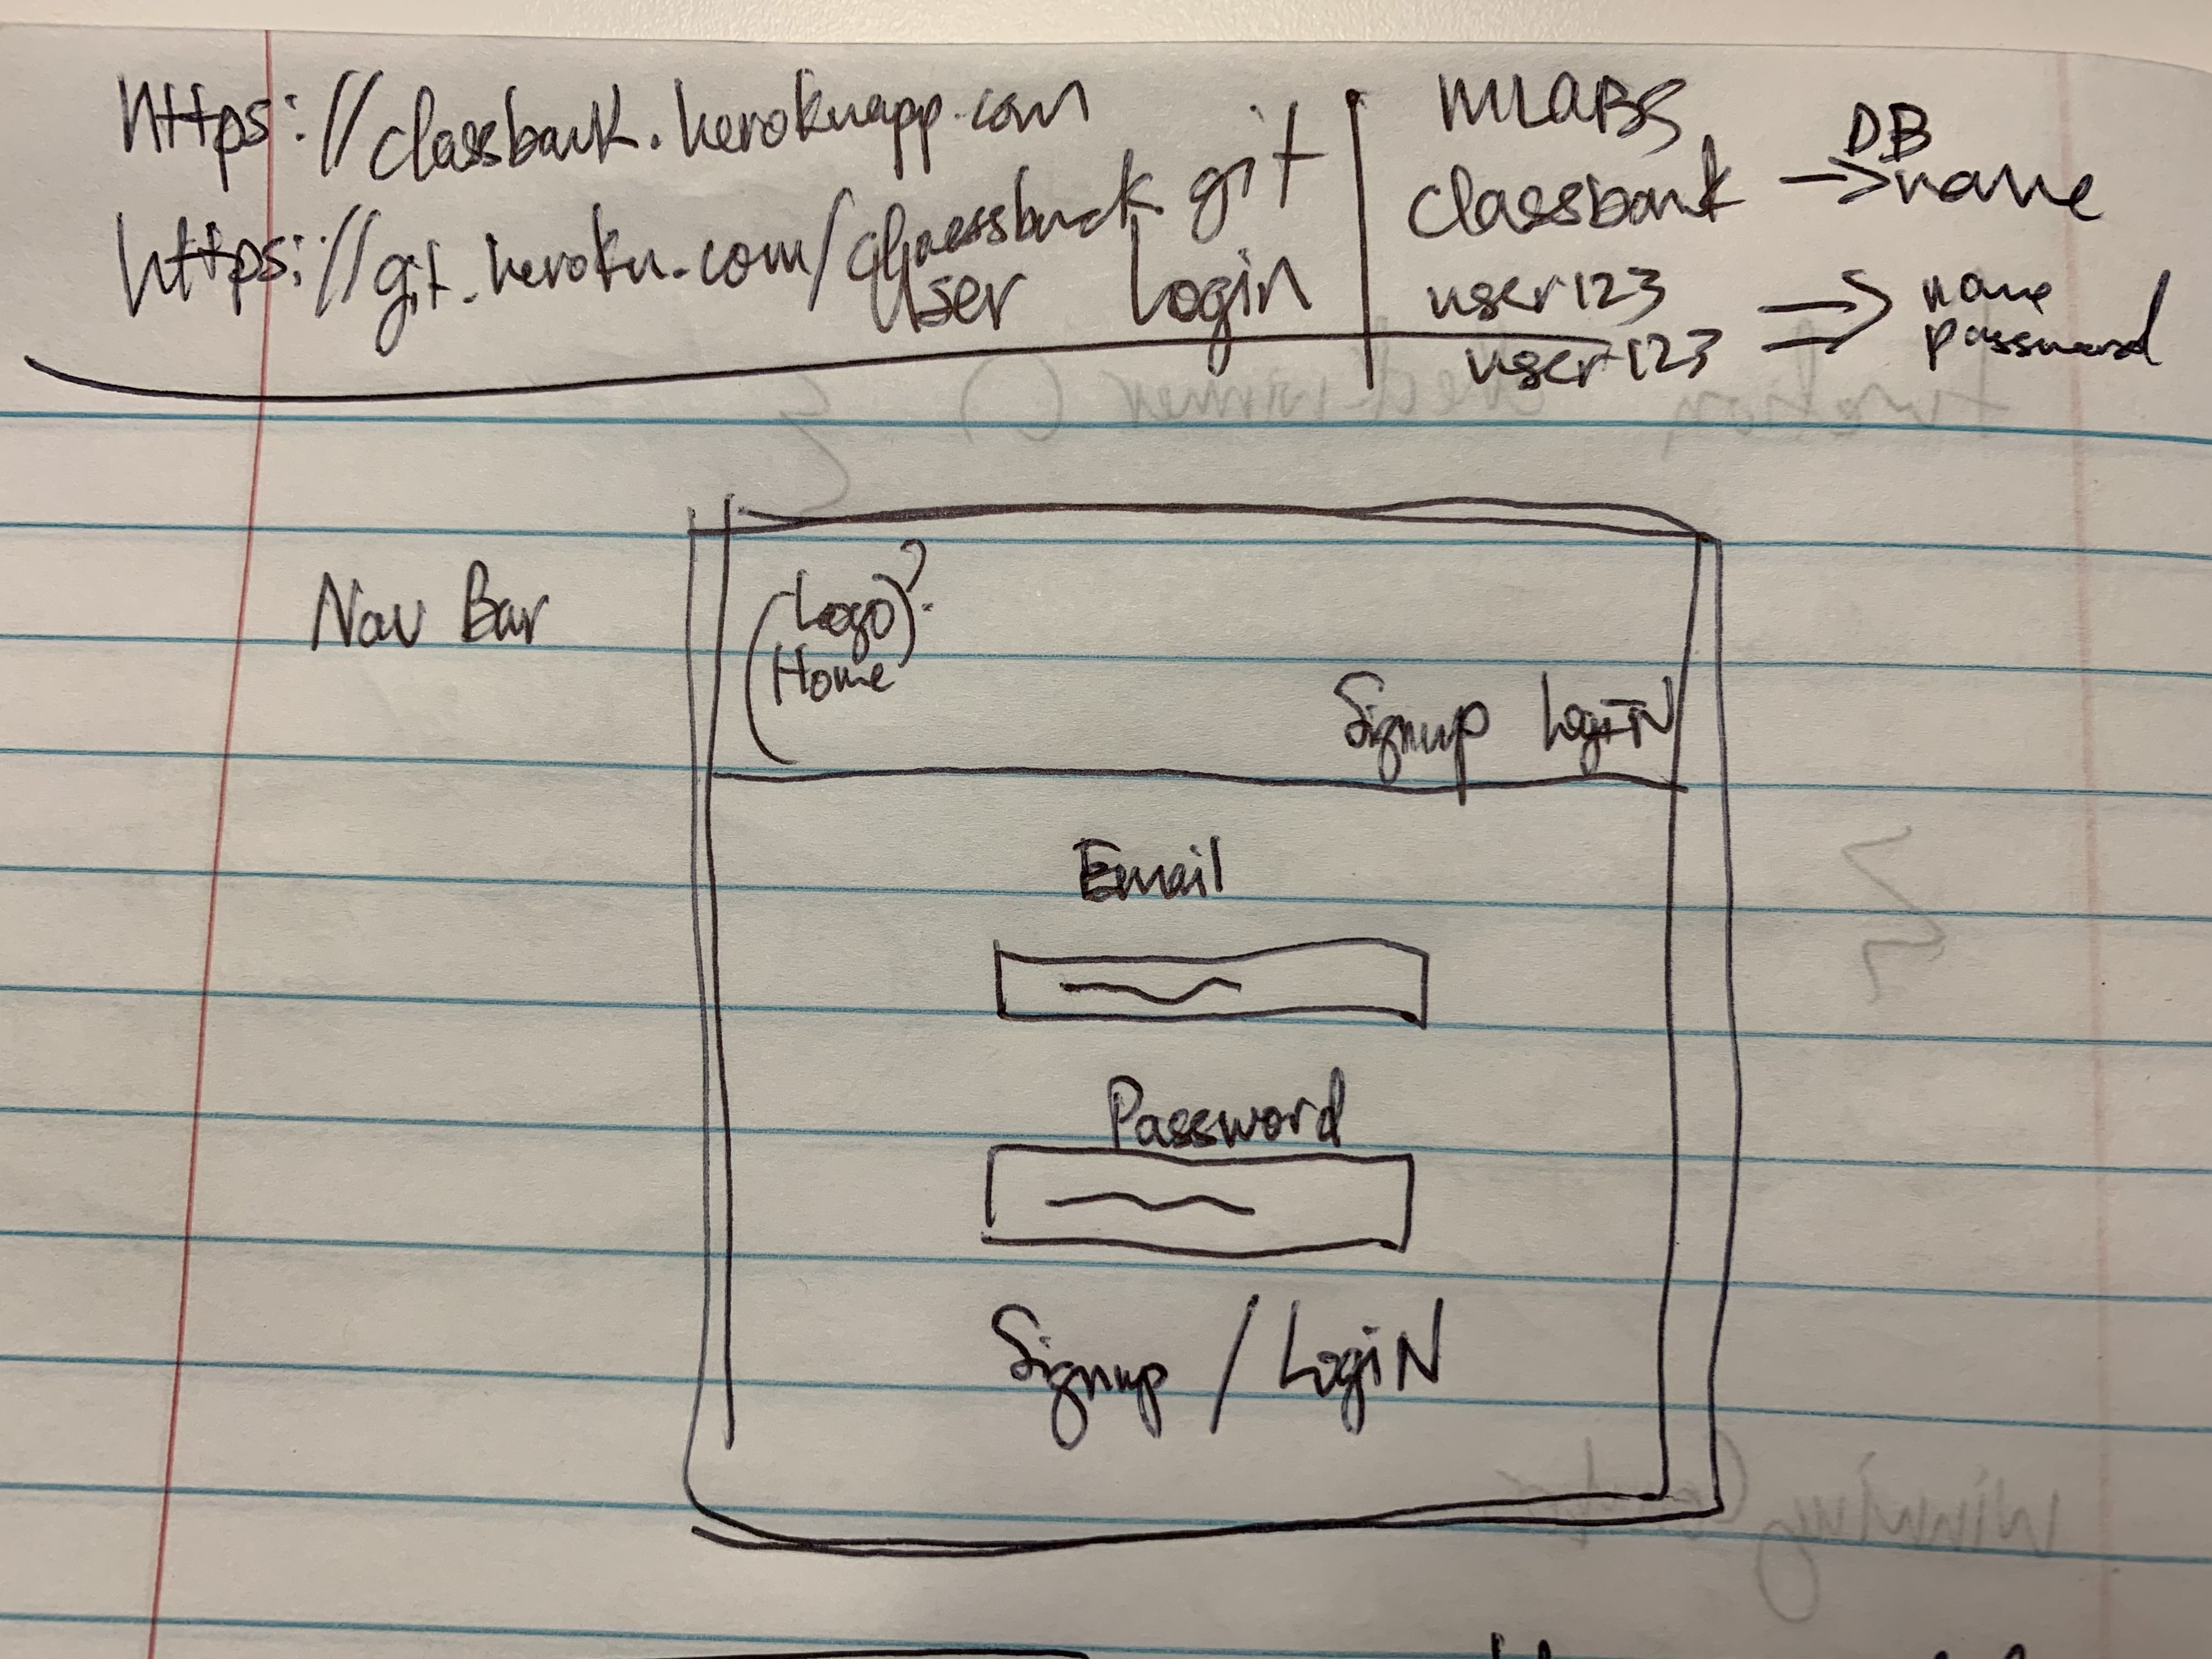 https://classbank.herokuapp.com
https://git.heroku.com/classbank.git
User Login
MLABS
classbank → DB name
user123 → name
user123 → password
Nav Bar
(Logo)?
Home
Signup LogIN
Email
Password
Signup / LogiN
function checkwinner () {
}
Winning